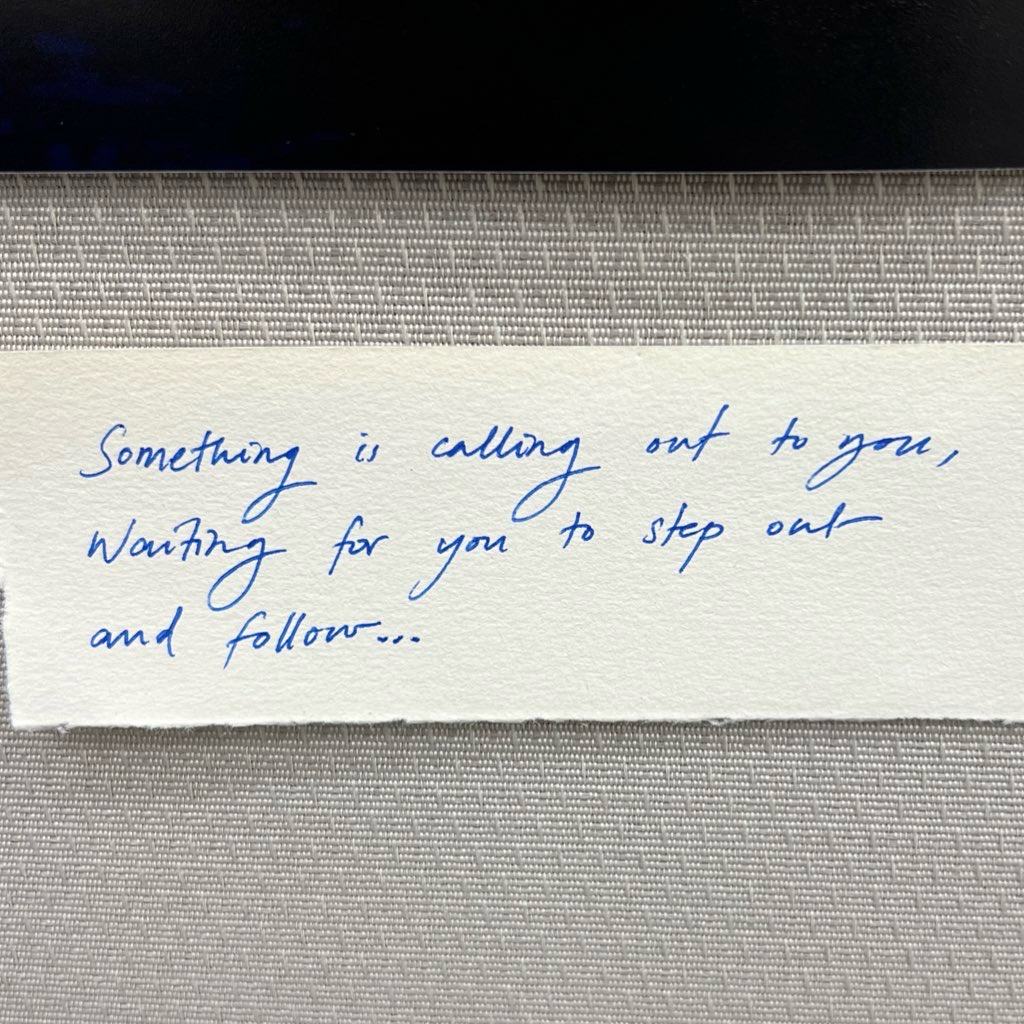 Something is calling out to you,
Waiting for you to step out
and follow...